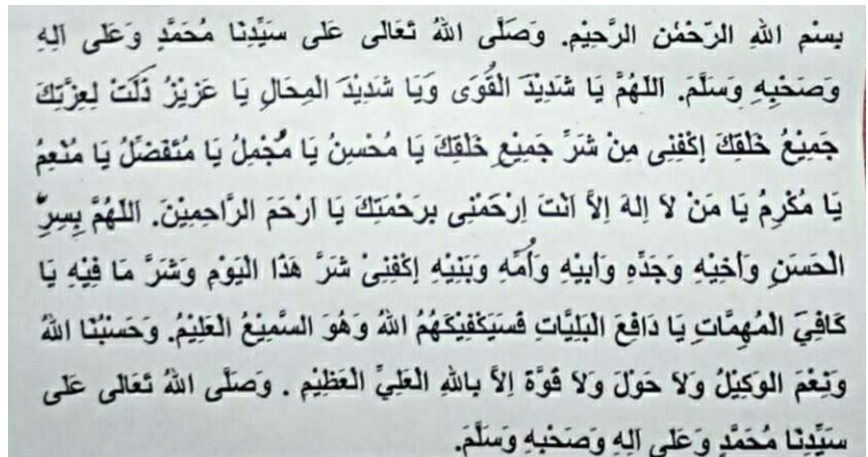 بِسْمِ اللهِ الرَّحْمٰنِ الرَّحِيْمِ. وَصَلَّى اللهُ تَعَالَى عَلَى سَيِّدِنَا مُحَمَّدٍ وَعَلَى اَلِهِ
وَصَحْبِهِ وَسَلَّمَ. اَللهُمَّ يَا شَدِيْدَ الْقُوَى وَيَا شَدِيْدَ الْمِحَالِ يَا عَزِيْزُ ذَلَّتْ لِعِزَّتِكَ
جَمِيْعُ خَلْقِكَ اِكْفِنِى مِنْ شَرِّ جَمِيْعِ خَلْقِكَ يَا مُحْسِنُ يَا مُجْمِلُ يَا مُتَفَضِّلُ يَا مُنْعِمُ
يَا مُكْرِمُ يَا مَنْ لاَ اِلهَ اِلاَّ اَنْتَ اِرْحَمْنِى بِرَحْمَتِكَ يَا اَرْحَمَ الرَّاحِمِيْنَ. اَللهُمَّ بِسِرِّ
الْحَسَنِ وَاَخِيْهِ وَجَدِّهِ وَاَبِيْهِ وَاُمِّهِ وَبَنِيْهِ اِكْفِنِيْ شَرَّ هَذَا الْيَوْمِ وَشَرَّ مَا فِيْهِ يَا
كَافِيَ الْمُهِمَّاتِ يَا دَافِعَ الْبَلِيَّاتِ فَسَيَكْفِيْكَهُمُ اللهُ وَهُوَ السَّمِيْعُ الْعَلِيْمُ. وَحَسْبُنَا اللهُ
وَنِعْمَ الْوَكِيْلُ وَلاَ حَوْلَ وَلاَ قُوَّةَ اِلاَّ بِاللهِ الْعَلِيِّ الْعَظِيْمِ . وَصَلَّى اللهُ تَعَالَى عَلَى
سَيِّدِنَا مُحَمَّدٍ وَعَلَى اَلِهِ وَصَحْبِهِ وَسَلَّمَ.